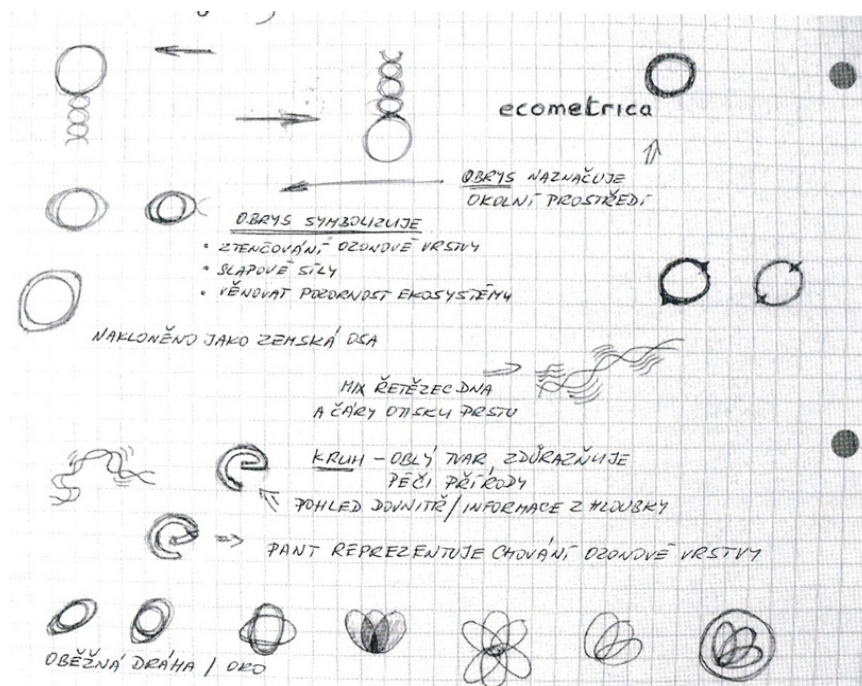 ecometrica
OBRYS NAZNAČUJE
OKOLNÍ PROSTŘEDÍ
OBRYS SYMBOLIZUJE
• ZTENČOVÁNÍ OZONOVÉ VRSTVY
• SLAPOVÉ SÍLY
• VĚNOVAT POZORNOST EKOSYSTÉMU
NAKLONĚNO JAKO ZEMSKÁ OSA
MIX ŘETĚZEC DNA
A ČÁRY OTISKU PRSTU
KRUH – OBLÝ TVAR, ZDŮRAZŇUJE
PÉČI PŘÍRODY
POHLED DOVNITŘ / INFORMACE Z HLOUBKY
PANT REPREZENTUJE CHOVÁNÍ OZONOVÉ VRSTVY
OBĚŽNÁ DRÁHA / OKO